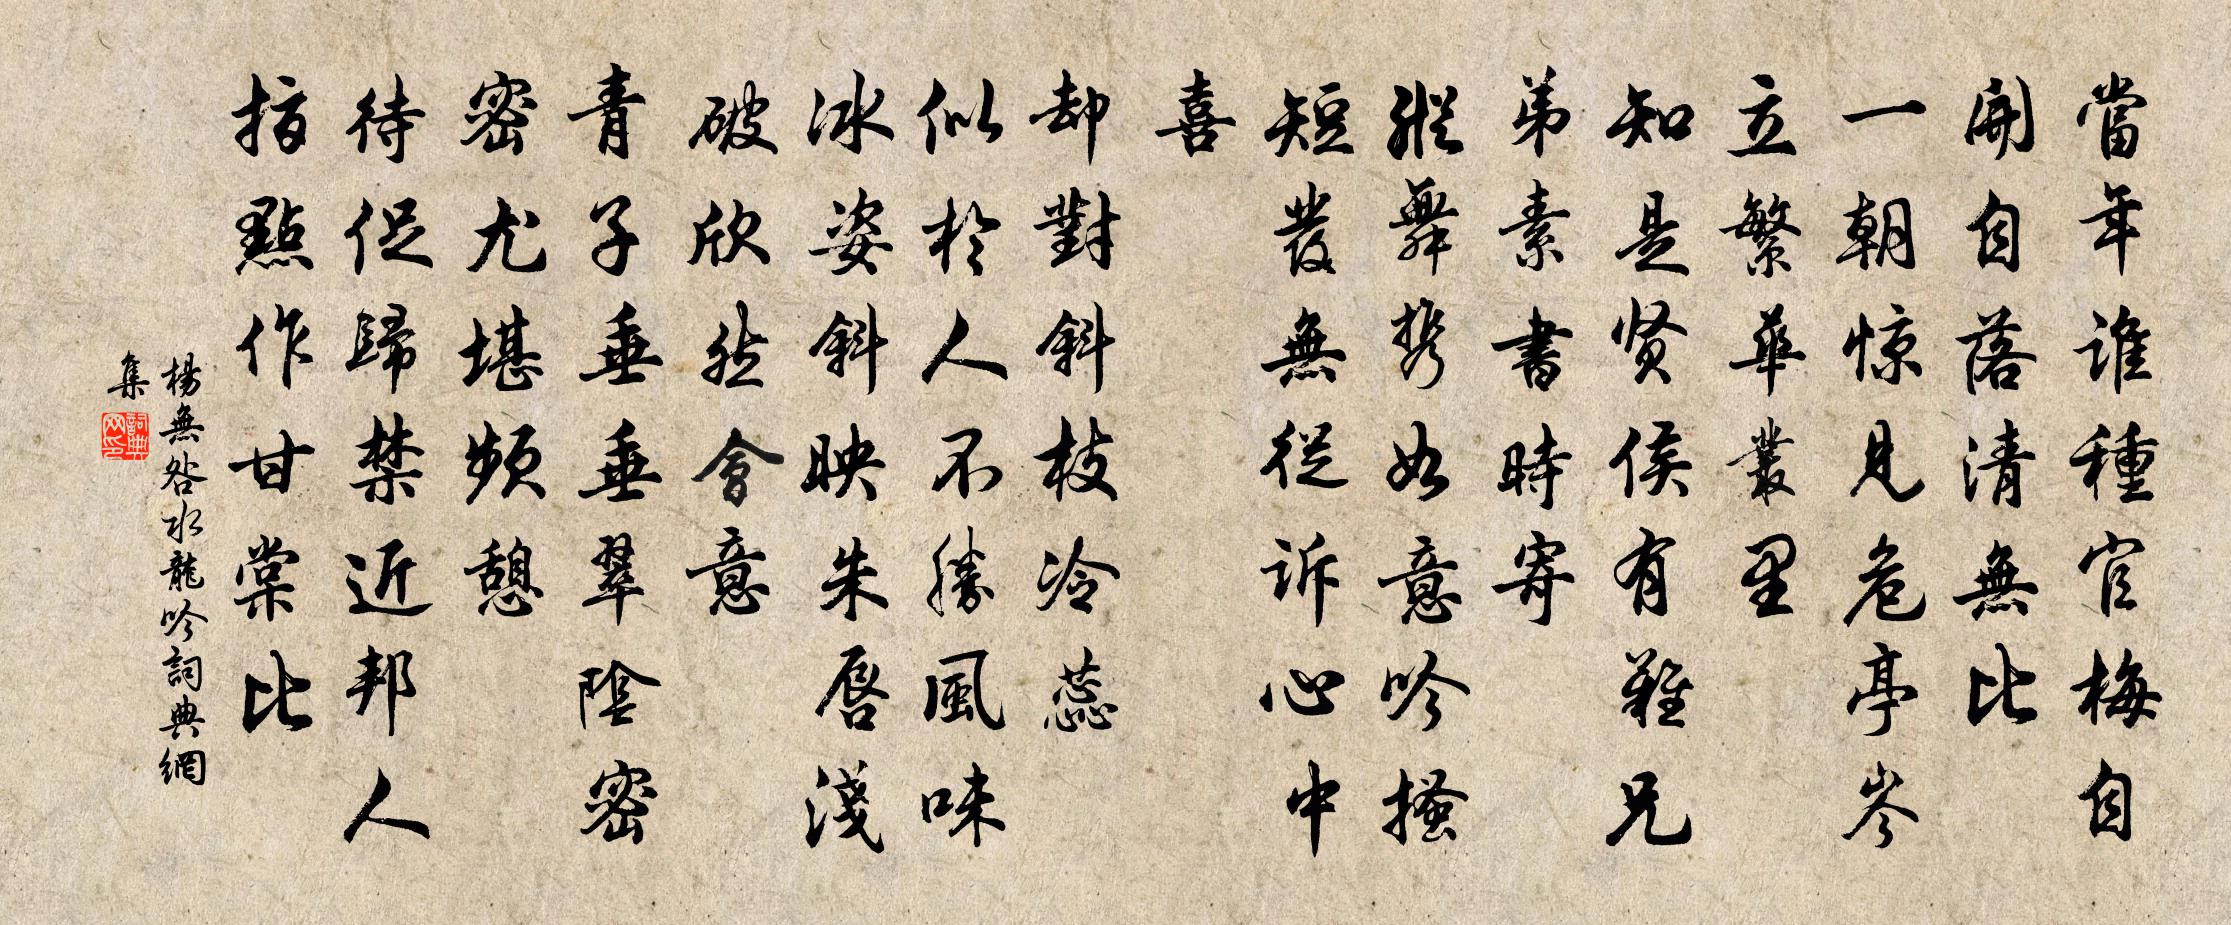 當年誰種官梅自
開自落清無比
一朝惊見危亭岑
立繁華叢里
知是贤侯有難兄
弟素書時寄
縱舞携如意吟搔
短發無從诉心中
喜
却對斜枝冷蕊
似於人不勝風味
冰姿斜映朱唇淺
破欣然會意
青子垂垂翠陰密
密尤堪頻憩
待促歸禁近邦人
指點作甘棠比
楊無咎水龍吟詞典網
集
詞典网印